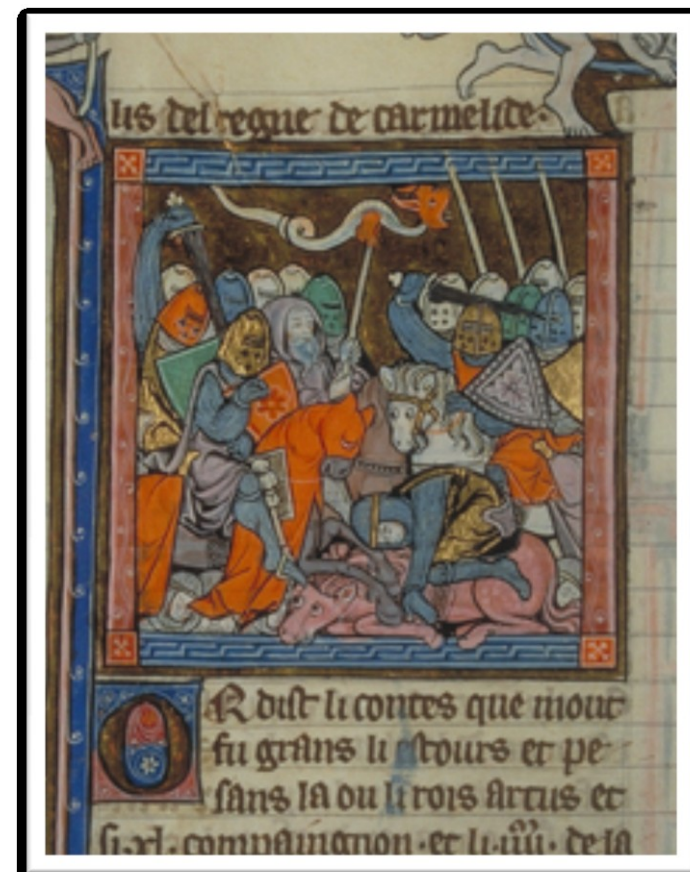 lis del regne de carmelide.
OR dist li contes que mout
fu grans li estours et pe
sans la ou li rois artus et
si.xl. compaingnon.et li.iiii. de la